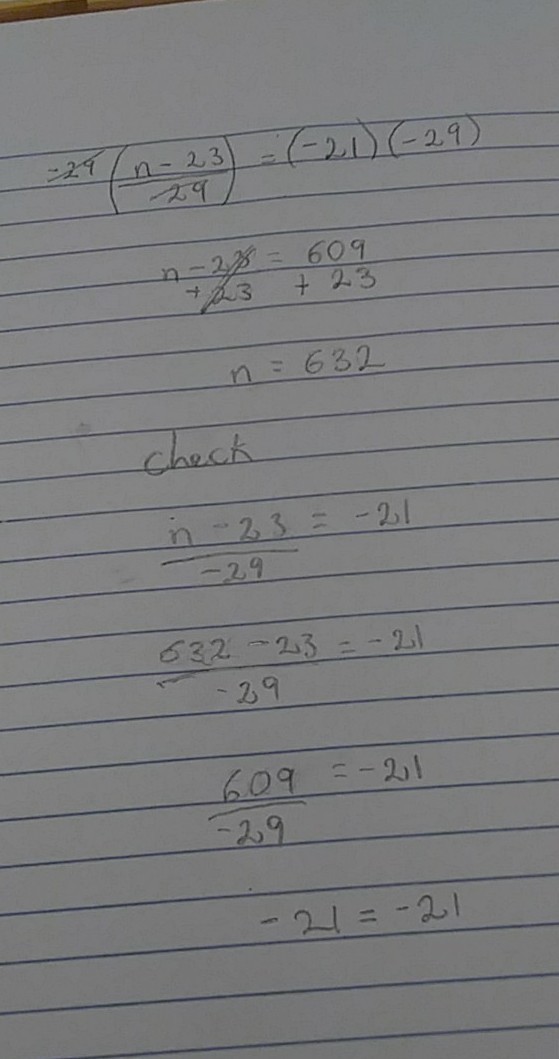 -29 (n - 23 / -29) = (-21)(-29)
n - 23 = 609
+ 23 + 23
n = 632
check
n - 23 / -29 = -21
632 - 23 / -29 = -21
609 / -29 = -21
-21 = -21